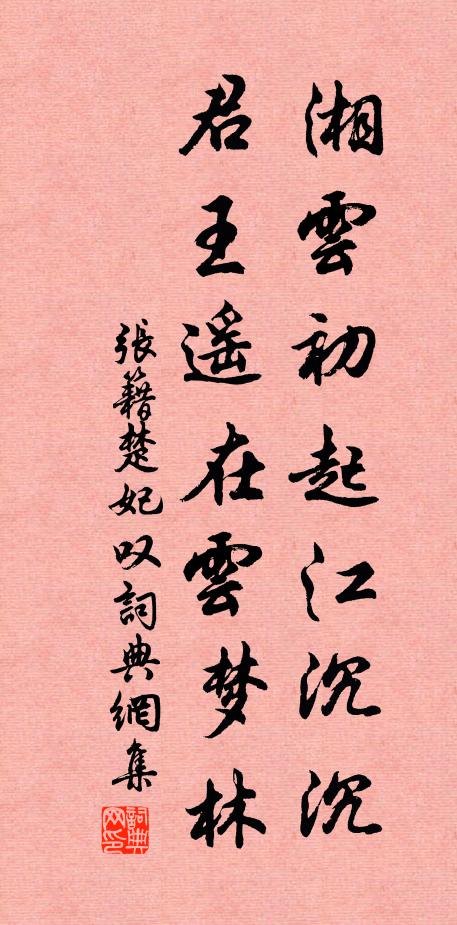 湘雲初起江沉沉
君王遥在雲梦林
張籍楚妃叹詞典網集
詞典网印